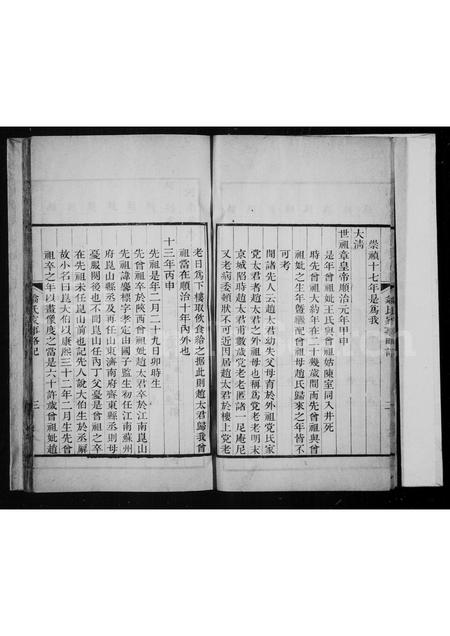 崇禎十七年是爲我
大清
世祖章皇帝順治元年甲申
是年曾祖妣王氏與曾祖姑陳室同入井死
時先曾祖大約年在二十幾歲間而先曾祖與曾
祖妣之生年曁繼配曾祖母趙氏歸來之年皆不
可考
聞諸先人云趙太君幼失父母育於外祖党氏家
党太君者趙太君之外祖母也稱爲党老老明末
京城陷時趙太君甫數歲党老老匿諸一足庵尼
又老病委頓狀不可近因居趙太君於樓上党老
老日爲下樓取飲食給之據此則趙太君歸我曾
祖當在順治十年內外也
十三年丙申
先祖是年二月二十九日卯時生
先曾祖卒於陝西曾祖妣趙太君卒於江南崑山
先祖諱襄標字孝定由國子監生初任江南蘇州
府崑山縣丞及再任山東濟南府齊東縣丞則母
憂服闋後也不聞崑山任內丁父憂是曾祖之卒
在先祖未任崑山前也記先人說大伯生於丞廨
故小名曰崑大伯以康熙三十二年二月生先曾
祖卒之年以畫像度之當是六十許歲曾祖妣趙
俞氏家事略記
三